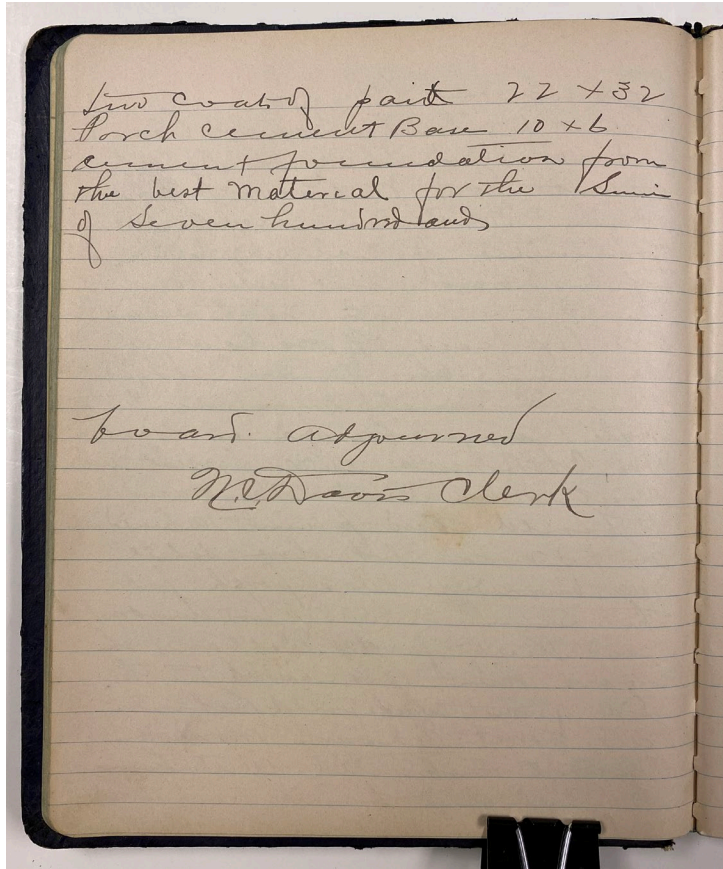 two coats of pait 22 x 32
Porch cement Base 10 x 6
cement foundation from
the best material for the Sum
of seven hundred and
board adjourned
Davis Clerk